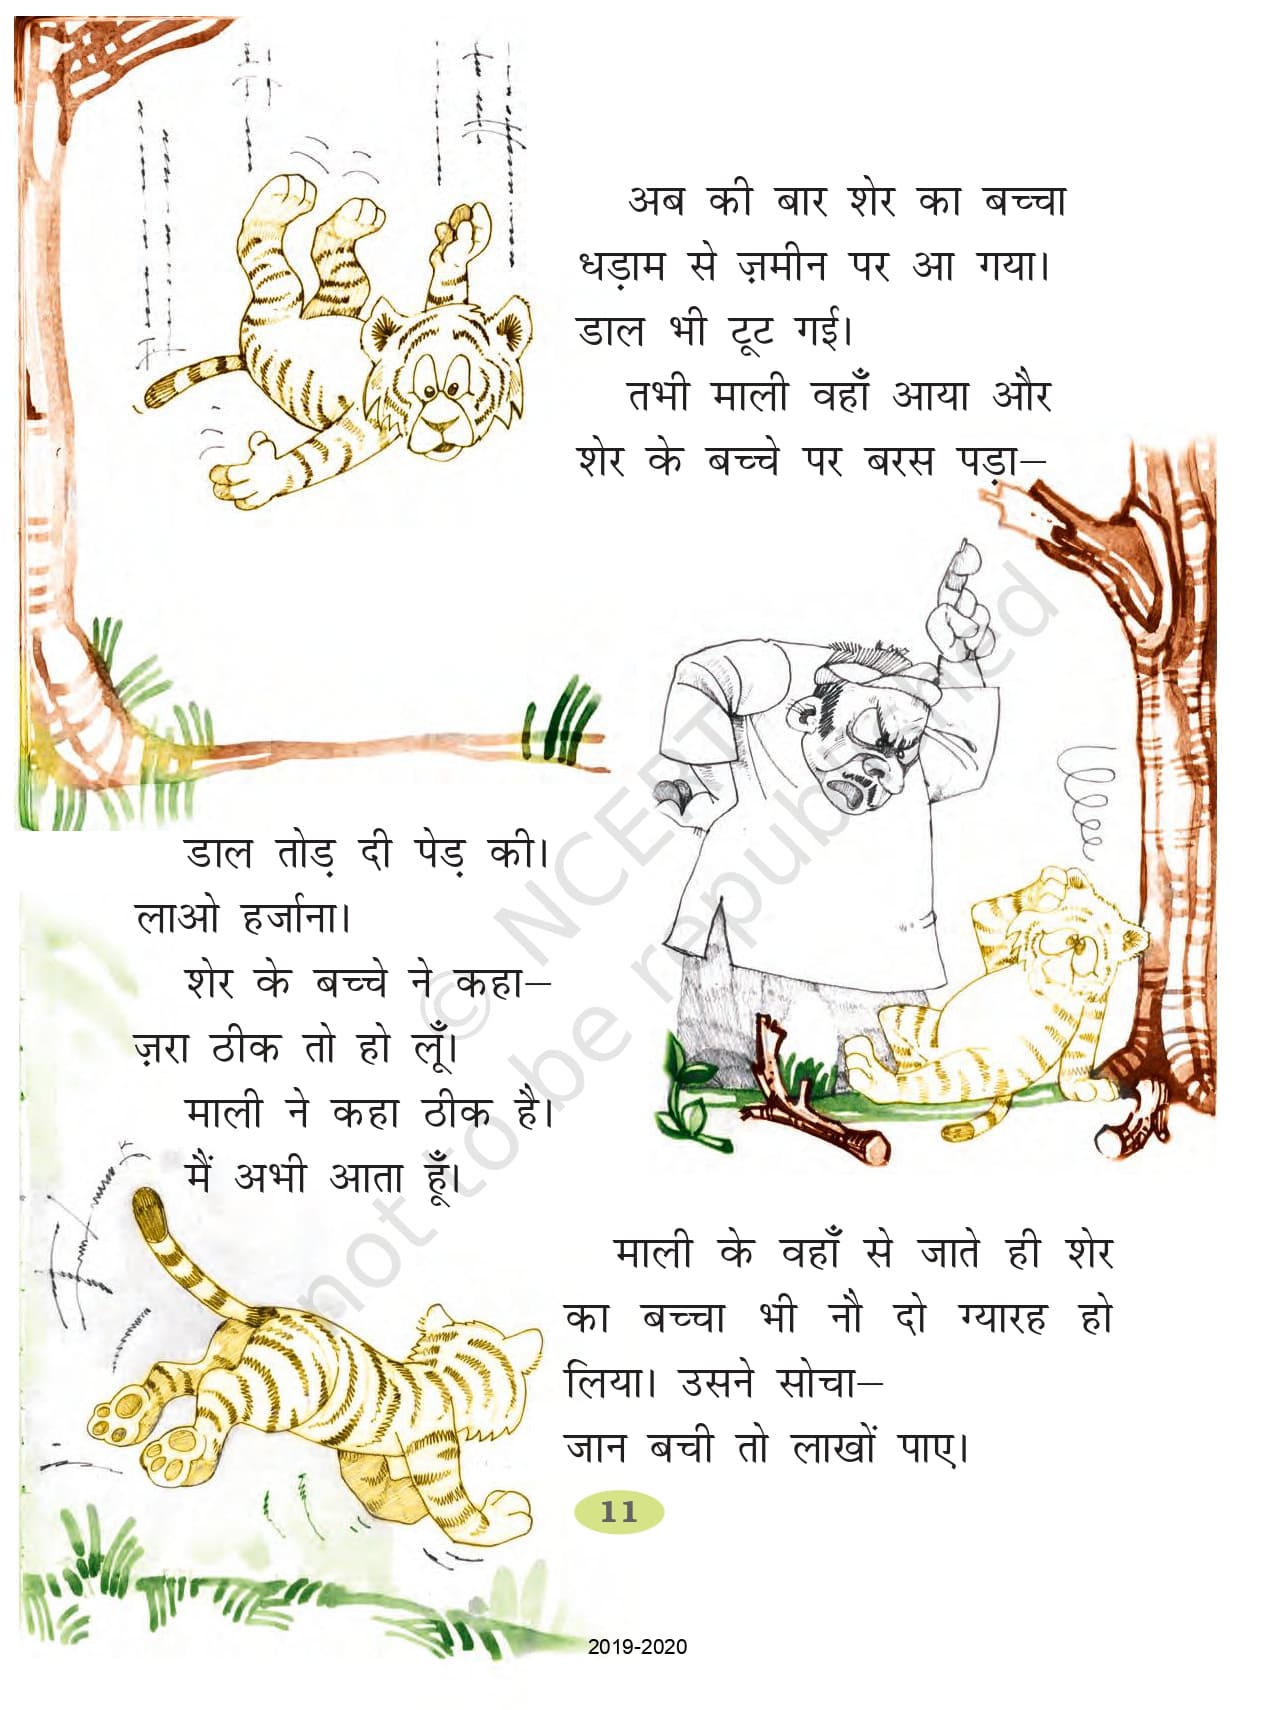 अब की बार शेर का बच्चा
धड़ाम से ज़मीन पर आ गया।
डाल भी टूट गई।
तभी माली वहाँ आया और
शेर के बच्चे पर बरस पड़ा–
डाल तोड़ दी पेड़ की।
लाओ हर्जाना।
शेर के बच्चे ने कहा–
ज़रा ठीक तो हो लूँ।
माली ने कहा ठीक है।
मैं अभी आता हूँ।
माली के वहाँ से जाते ही शेर
का बच्चा भी नौ दो ग्यारह हो
लिया। उसने सोचा–
जान बची तो लाखों पाए।
11
2019-2020
© NCERT
not to be republished